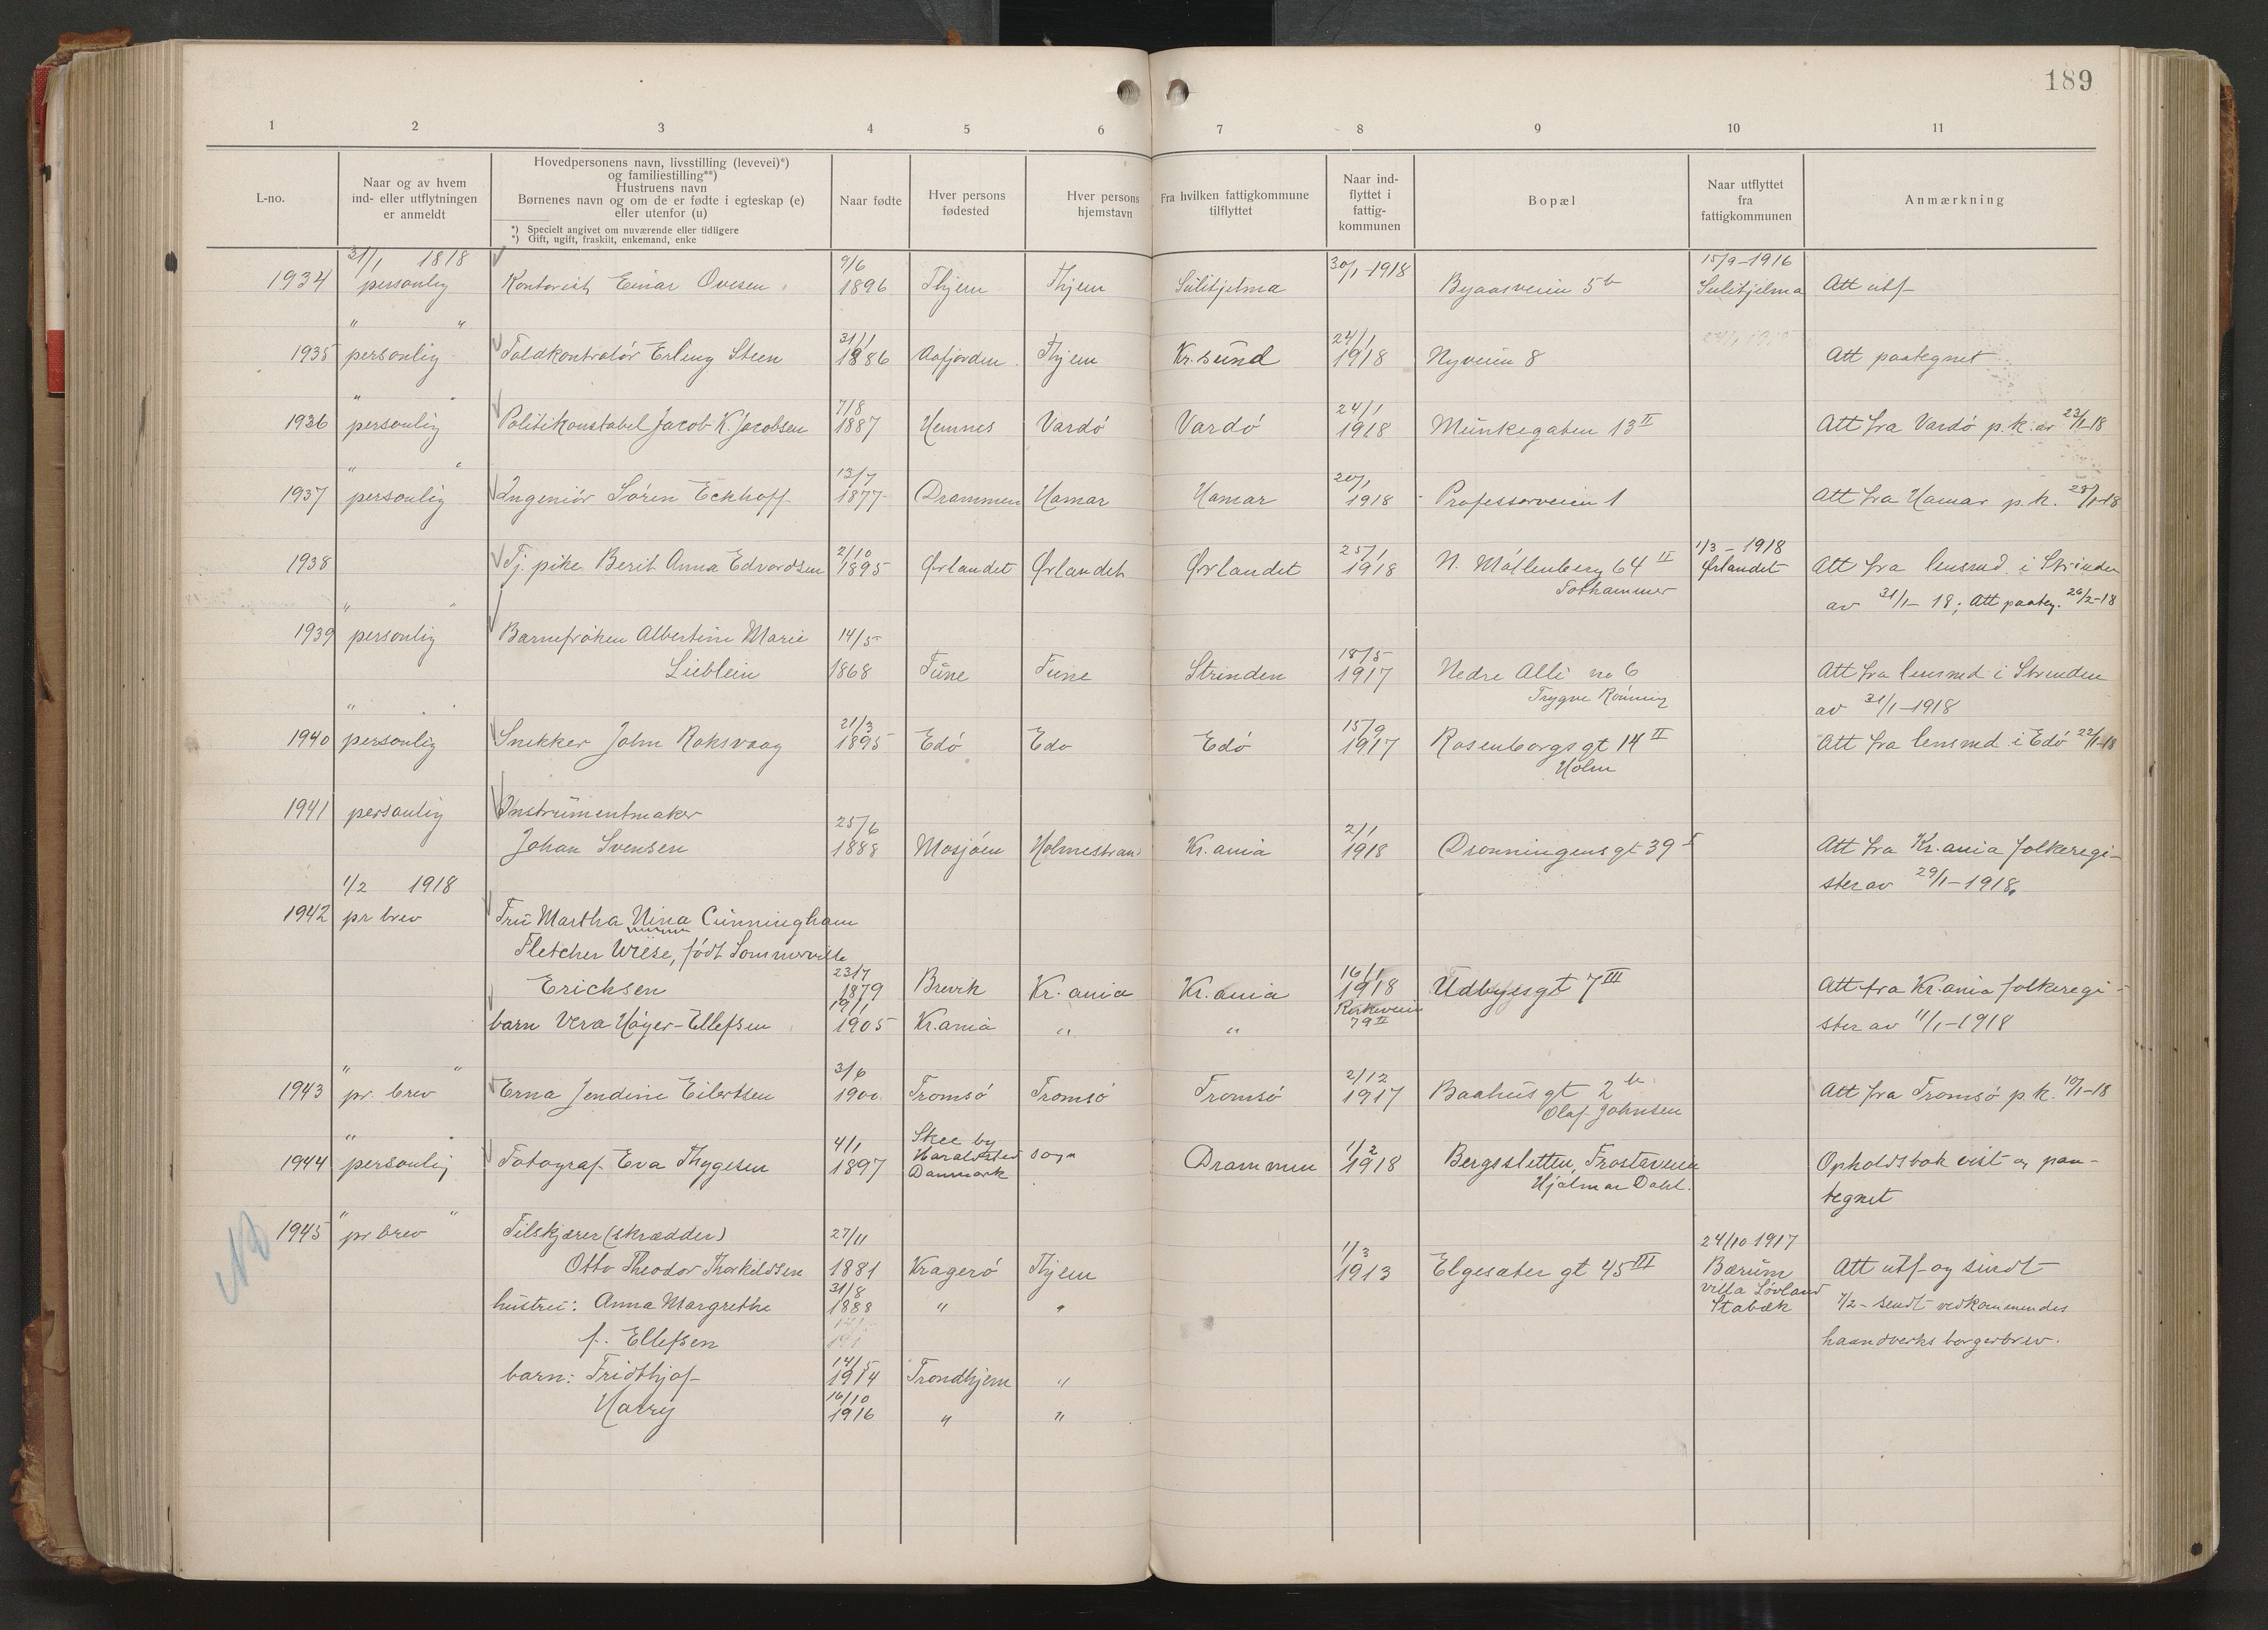 189
1 2 3 4 5 6 7 8 9 10 11
L-no.
Naar og av hvem
ind- eller utflytningen
er anmeldt
Hovedpersonens navn, livsstilling (levevei)*)
og familiestilling**)
Hustruens navn
Børnenes navn og om de er fødte i egteskap (e)
eller utenfor (u)
*) Specielt angivet om nuværende eller tidligere
*) Gift, ugift, fraskilt, enkemand, enke
Naar fødte
Hver persons
fødested
Hver persons
hjemstavn
Fra hvilken fattigkommune
tilflyttet
Naar ind-
flyttet i
fattig-
kommunen
Bopæl
Naar utflyttet
fra
fattigkommunen
Anmærkning
31/1 1818 9/6 30/1-1918 15/9-1916
1934 personlig Kontorist Einar Ovesen 1896 Thjem Thjem Sulitjelma Byaasveien 5b Sulitjelma Att utf
" " 31/1 24/1
1935 personlig Toldkontrolör Erling Steen 1886 Aafjorden Thjem Kr.sund 1918 Nyveien 8 Att paategnet
" " 7/8 24/1
1936 personlig Politikonstabel Jacob K. Jacobsen 1887 Hemnes Vardö Vardö 1918 Munkegaten 13 II Att fra Vardö p.k. av 23/1-18
" " 13/7 20/1
1937 personlig Ingeniör Sören Eckhoff 1877 Drammen Hamar Hamar 1918 Professorveien 1 Att fra Hamar p.k. 28/1-18
2/10 25/1 1/3-1918
1938 Tj. pike Berit Anna Edvardsen 1895 Ørlandet Ørlandet Ørlandet 1918 N. Möllenberg 64 II Ørlandet Att fra lensmd. i Strinden
Fothammer av 31/1-18; Att paateg. 26/2-18
" "
1939 personlig Barnefröken Albertine Marie 14/5
18/5
Lieblein 1868 Tune Tune Strinden 1917 Nedre Alle no 6 Att fra lensmd i Strinden
Trygve Rönning av 31/1-1918
" " 21/3 15/9
1940 personlig Snekker John Roksvaag 1895 Edö Edö Edö 1917 Rosenborgs gt 14 II Att fra lensmd. i Edö 22/1-18
Holm
1941 personlig Instrumentmaker
25/6 2/1
Johan Svensen 1888 Mosjöen Holmestrand Kr.ania 1918 Dronningensgt 39 I Att fra Kr.ania folkeregi-
ster av 29/1-1918.
1/2 1918
1942 pr brev Fru Martha Nina Cunningham
Fletcher Wiese, födt Sommerville
23/7 16/1
Erichsen 1879 Brevik Kr.ania Kr.ania 1918 Udbyesgt 7 III Att fra Kr.ania folkeregi-
19/1 Kirkeveien
barn Vera Höyer-Ellefsen 1905 Kr.ania " " 79 II ster av 11/1-1918
" " 3/6 2/12
1943 pr. brev Erna Jendine Eilertsen 1900 Tromsö Tromsö Tromsö 1917 Baahus gt 2b Att fra Tromsö p.k. 10/1-18
Olaf Johnsen
" " 4/1 Skee by 1/2
1944 personlig Fotograf Eva Thygesen 1897 Haraldsted sogn Drammen 1918 Bergsletten, Frostaveien Opholdsbok vist og paa-
Danmark Hjalmar Dahl. tegnet
" "
1945 pr brev Tilskjærer (skrædder) 27/11
NB
1/3 24/10 1917
Otto Theodor Thorkildsen 1881 Kragerö Thjem 1913 Elgesæter gt 45 III Bærum Att utf og sendt
31/8 villa Lövland
hustru: Anna Margrethe 1888 " " Stabæk 7/2- sendt vedkommendes
f. Ellefsen haandverks borgerbrev.
14/5
barn: Fridthjof 1914 Trondhjem "
16/10
Harry 1916 " "